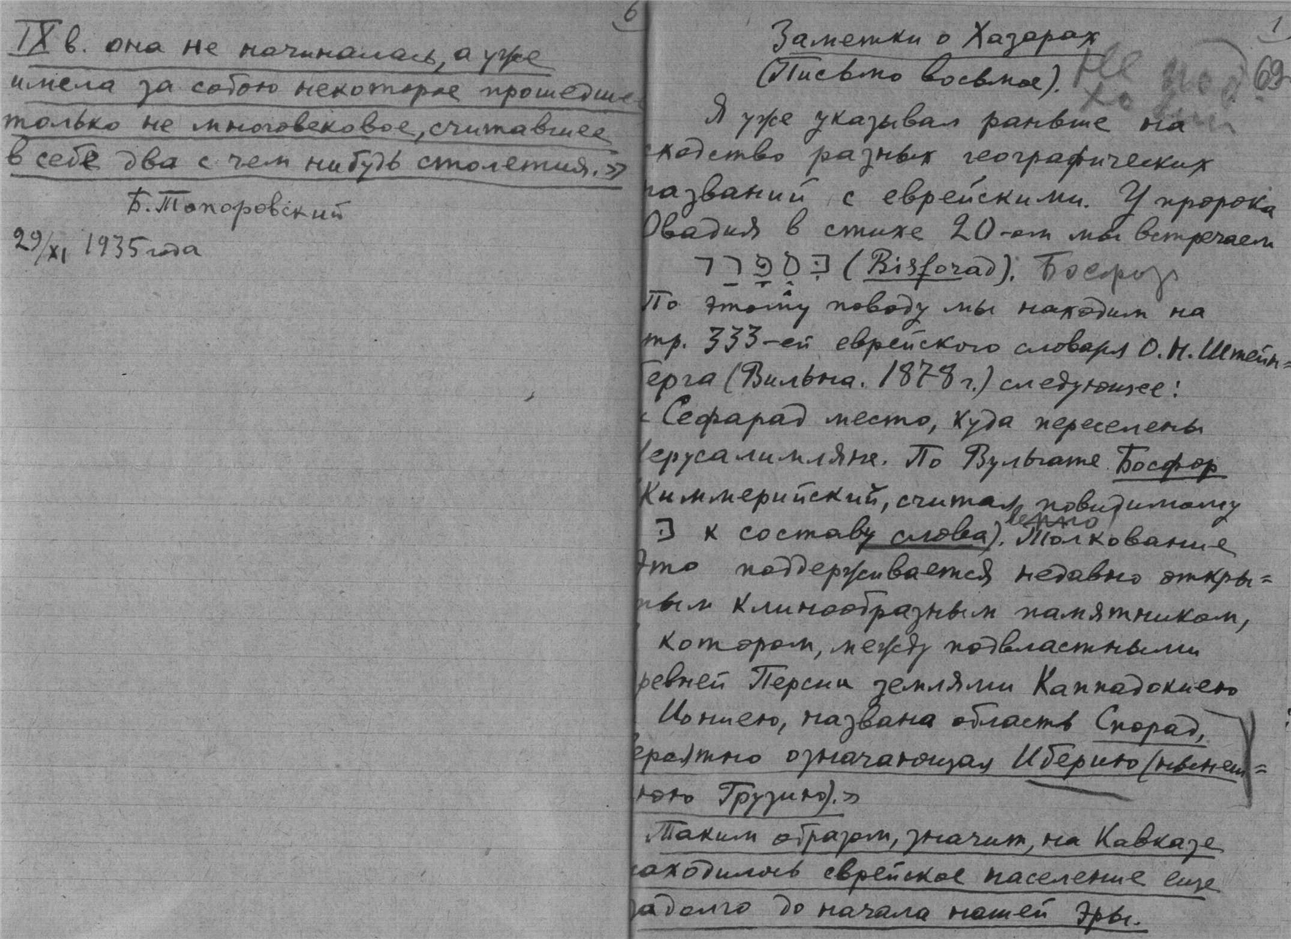 6
IX в. она не начиналась, а уже
имела за собою некоторое прошедшее
только не многовековое, считавшее
в себе два с чем нибудь столетия.»
Б. Топоровский
29/XI 1935 года
1
Заметки о Хазарах
(Письмо восьмое).
Не под
69
ходит
Я уже указывал раньше на
сходство разных географических
названий с еврейскими. У пророка
Овадия в стихе 20-ом мы встречаем
בִּסְפָרַד (Bisforad).
По этому поводу мы находим на
стр. 333-ей еврейского словаря О. Н. Штейн=
берга (Вильна. 1878 г.) следующее:
« Сефарад место, куда переселены
Иерусалимляне. По Вульгате Босфор
Киммерийский, считая повидимому
בִּ к составу слова). Толкование
это поддерживается недавно откры=
тым клинообразным памятником,
в котором, между подвластными
древней Персии землями Каппадокиею
и Иониею, названа область Спорад,
вероятно означающая Иберию (нынеш=
нюю Грузию).»
Таким образом, значит, на Кавказе
находилось еврейское население еще
задолго до начала нашей эры.